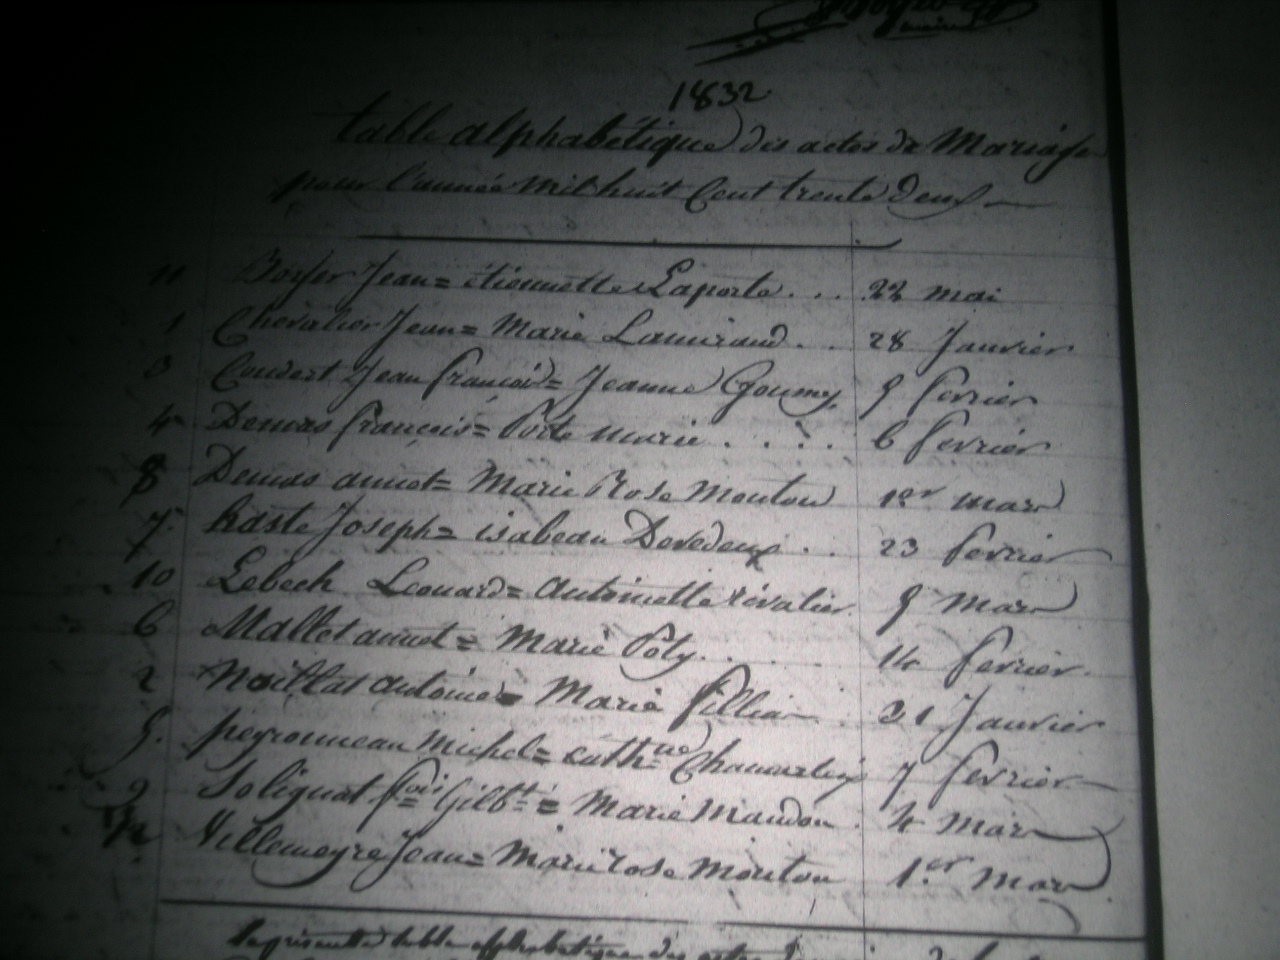 1832
table alphabétique des actes de Mariage
pour l'année mil huit Cent trente deux
11 Boyer Jean = étiennette Laporte . . . 22 mai
1 Chevalier Jean = Marie Lamirand . . 28 Janvier
3 Coudert Jean françois = Jeanne Goumy. 5 fevrier
4 Demas françois = Porte marie . . . . 6 fevrier
8 Demas annet = Marie Rose Mouton 1er mars
7 haste Joseph = isabeau Devedeux . . 23 fevrier
10 Lebech Leonard = Antoinette 9 mars
6 Mallet annet = Marie Poty . . . . 14 fevrier
2 Noillat antoine = Marie fillias . 31 Janvier
5. peyronneau michel = cathne 7 fevrier
9 Solignat fois Gilbt = Marie Mandon . 4 mars
Villemeyre Jean = Marie rose mouton 1er mars
la présente table alphabétique des actes de